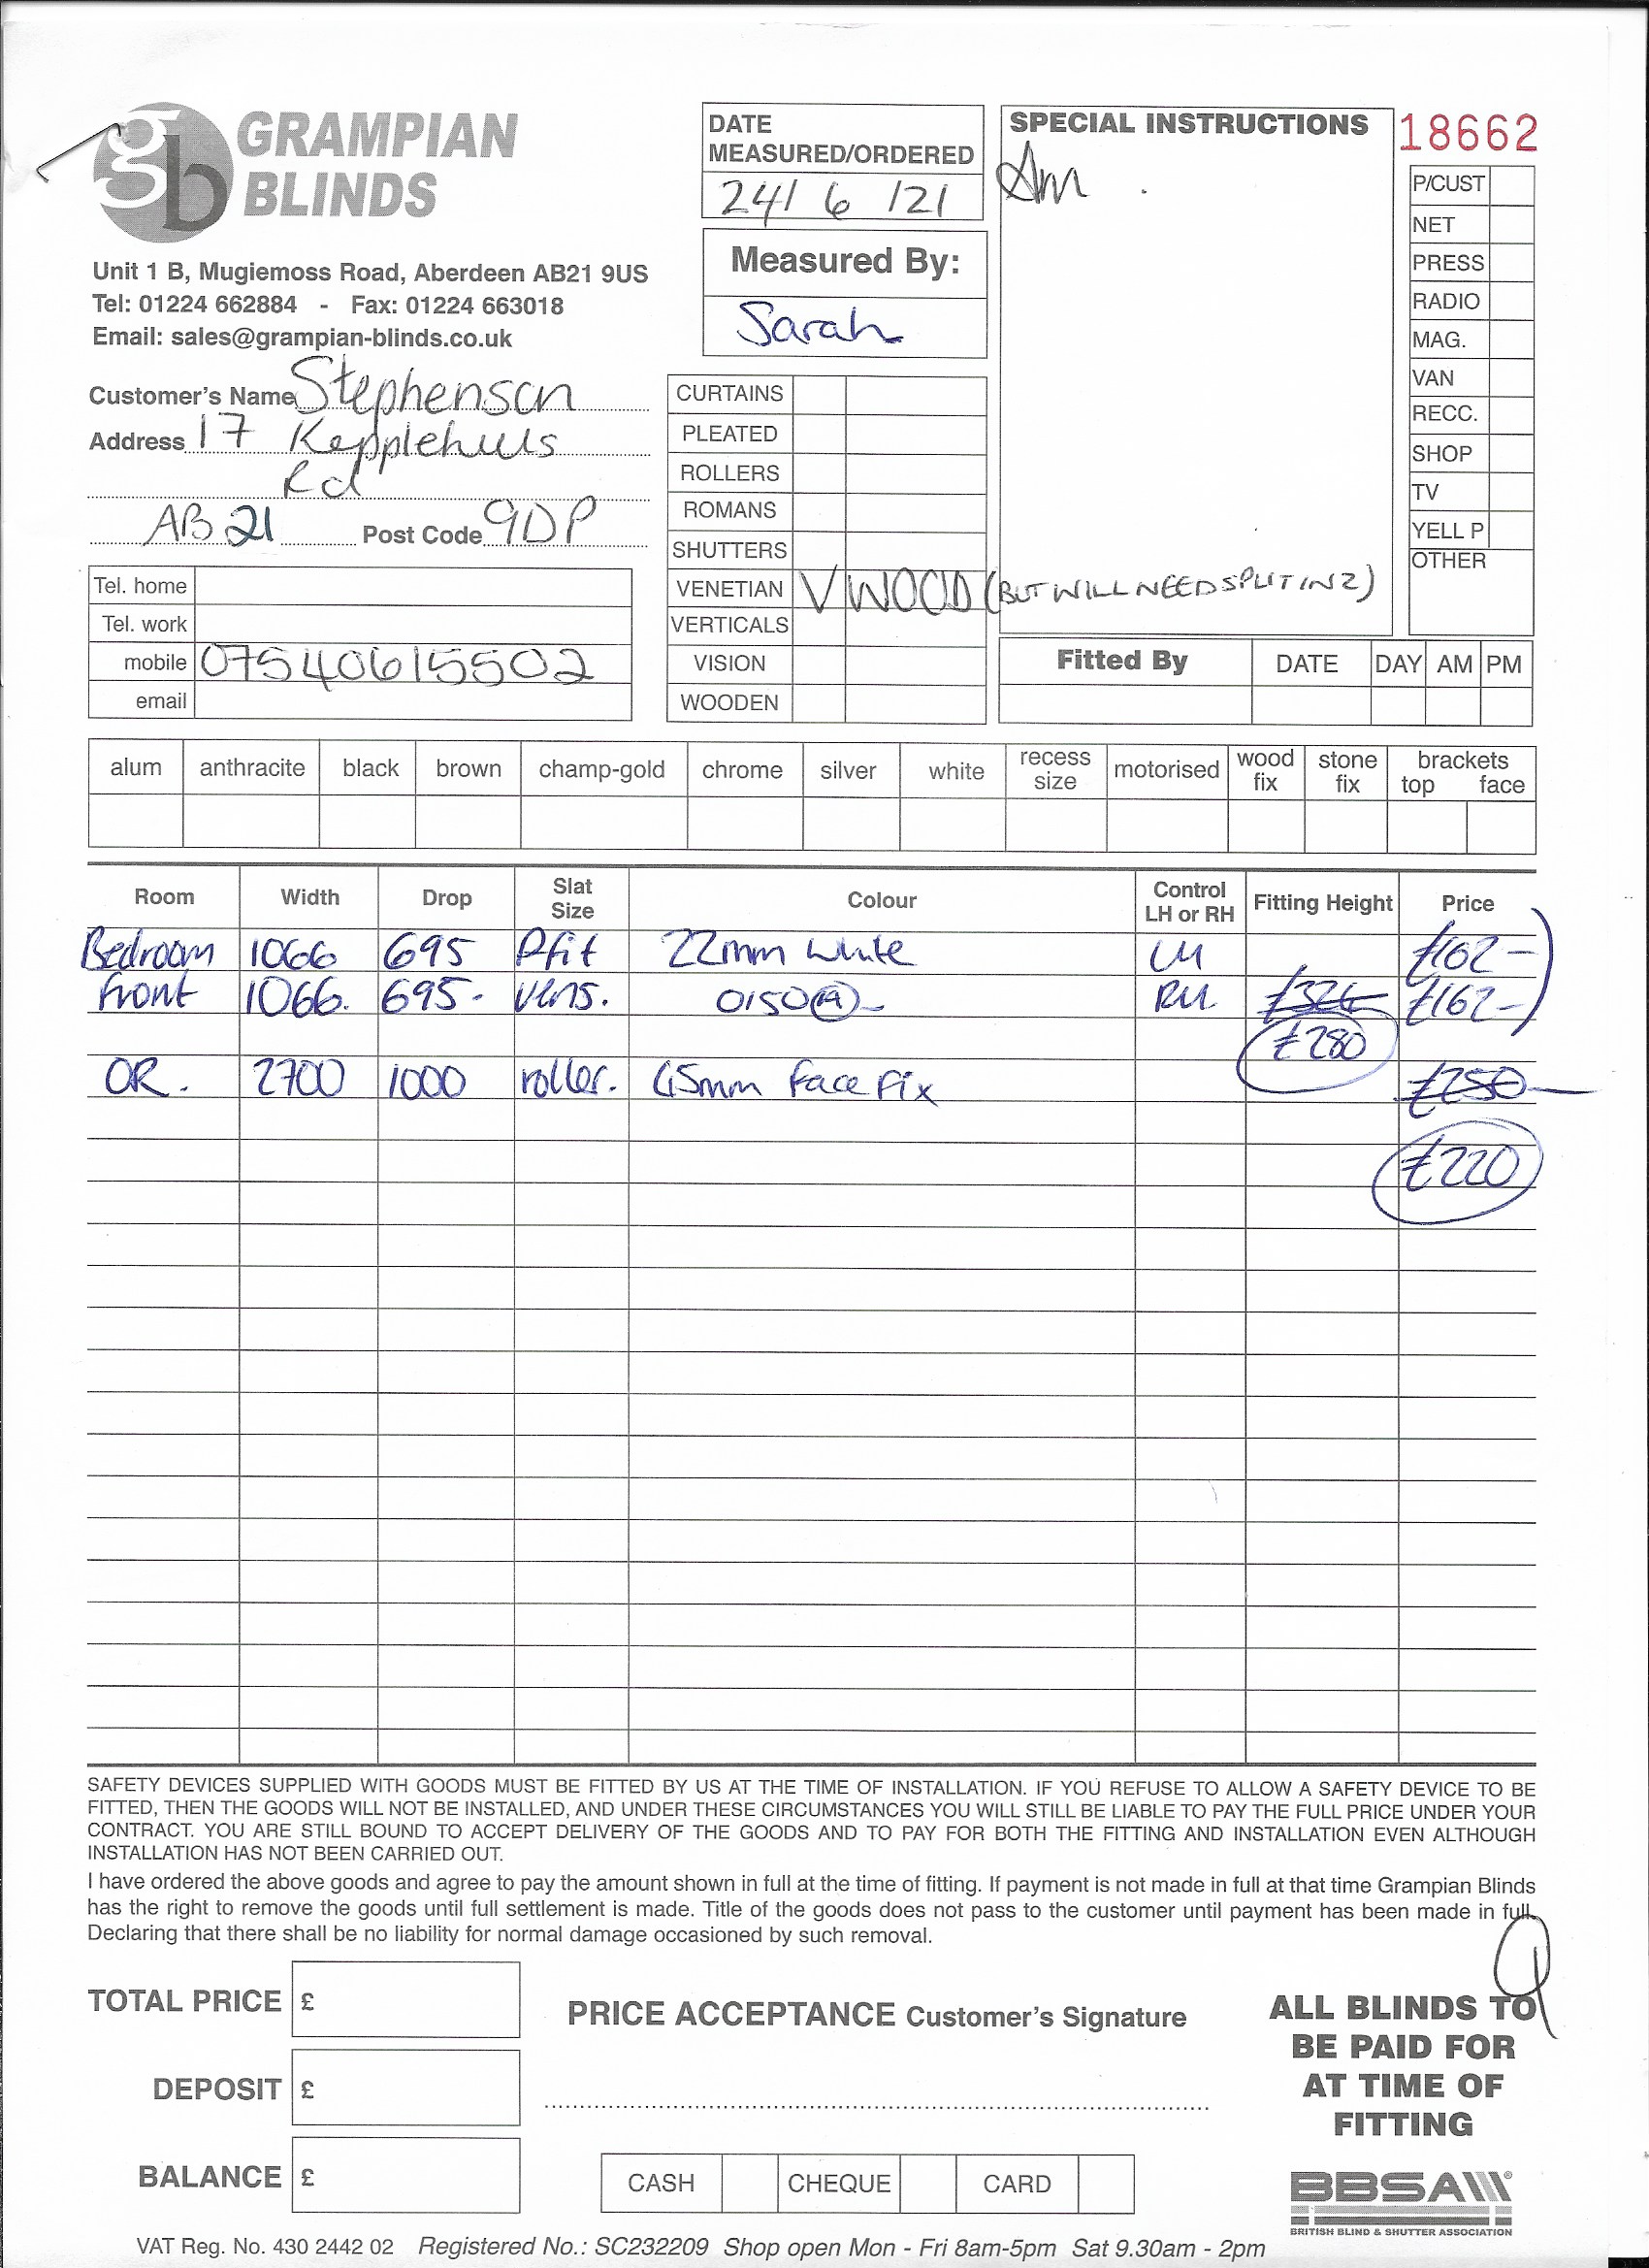 gb GRAMPIAN BLINDS
Unit 1 B, Mugiemoss Road, Aberdeen AB21 9US
Tel: 01224 662884 - Fax: 01224 663018
Email: sales@grampian-blinds.co.uk
Customer's Name Stephenson
Address 17 Kepplehills
Rd
AB 21 Post Code 9DP
Tel. home
Tel. work
mobile 07540615502
email
DATE
MEASURED/ORDERED
24/ 6 /21
Measured By:
Sarah
CURTAINS
PLEATED
ROLLERS
ROMANS
SHUTTERS
VENETIAN V WOOD (BUT WILL NEED SPLIT IN 2)
VERTICALS
VISION
WOODEN
SPECIAL INSTRUCTIONS
Am
18662
P/CUST
NET
PRESS
RADIO
MAG.
VAN
RECC.
SHOP
TV
YELL P
OTHER
Fitted By DATE DAY AM PM
alum anthracite black brown champ-gold chrome silver white recess size motorised wood fix stone fix brackets top face
Room Width Drop Slat Size Colour Control LH or RH Fitting Height Price
Bedroom 1066 695 Pfit 22mm White LH £162-
front 1066. 695- Vens. 0150 RH £324 £162-
£280
OR. 2700 1000 roller. 45mm face fix £250
£220
SAFETY DEVICES SUPPLIED WITH GOODS MUST BE FITTED BY US AT THE TIME OF INSTALLATION. IF YOU REFUSE TO ALLOW A SAFETY DEVICE TO BE
FITTED, THEN THE GOODS WILL NOT BE INSTALLED, AND UNDER THESE CIRCUMSTANCES YOU WILL STILL BE LIABLE TO PAY THE FULL PRICE UNDER YOUR
CONTRACT. YOU ARE STILL BOUND TO ACCEPT DELIVERY OF THE GOODS AND TO PAY FOR BOTH THE FITTING AND INSTALLATION EVEN ALTHOUGH
INSTALLATION HAS NOT BEEN CARRIED OUT.
I have ordered the above goods and agree to pay the amount shown in full at the time of fitting. If payment is not made in full at that time Grampian Blinds
has the right to remove the goods until full settlement is made. Title of the goods does not pass to the customer until payment has been made in full.
Declaring that there shall be no liability for normal damage occasioned by such removal.
TOTAL PRICE £
DEPOSIT £
BALANCE £
PRICE ACCEPTANCE Customer's Signature
CASH CHEQUE CARD
ALL BLINDS TO
BE PAID FOR
AT TIME OF
FITTING
BBSA
BRITISH BLIND & SHUTTER ASSOCIATION
VAT Reg. No. 430 2442 02 Registered No.: SC232209 Shop open Mon - Fri 8am-5pm Sat 9.30am - 2pm